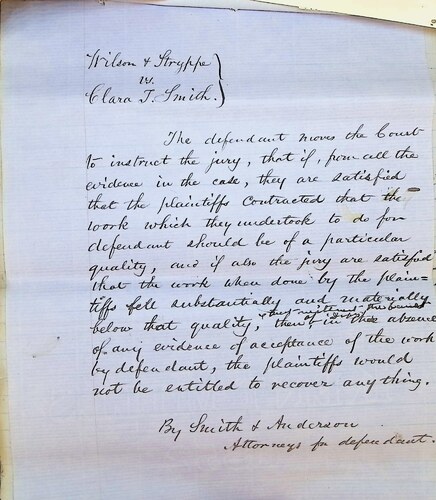 Wilson & Stryppe
vs.
Clara T. Smith.
The defendant moves the Court
to instruct the jury, that if, from all the
evidence in the case, they are satisfied
that the plaintiffs contracted that the
work which they undertook to do for
defendant should be of a particular
quality, and if also the jury are satisfied
that the work when done by the plain=
tiffs fell substantially and materially
below that quality, then in the absence
of any evidence of acceptance of the work
by defendant, the plaintiffs would
not be entitled to recover anything.
By Smith & Anderson
Attorneys for defendant.